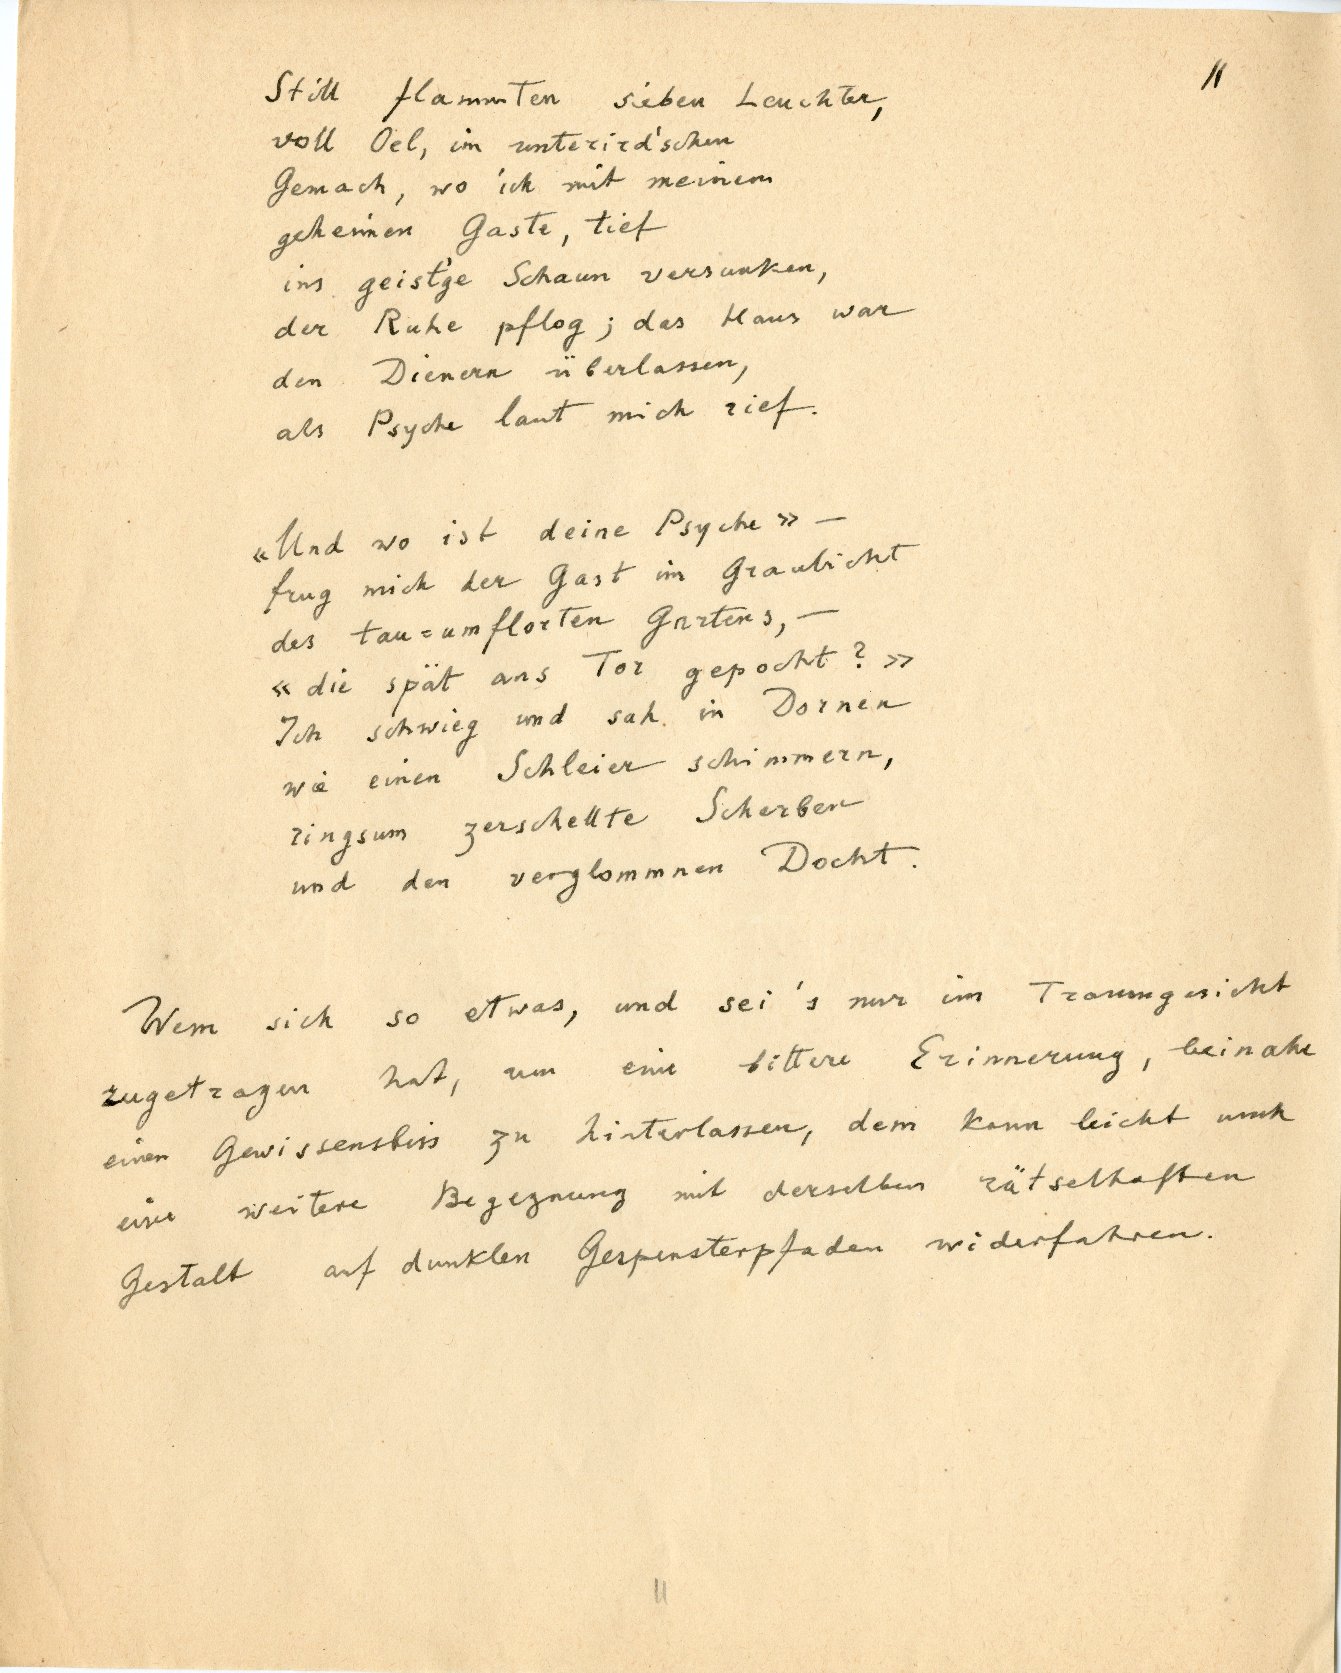 11
Still flammten sieben Leuchter,
voll Oel, im unterird'schen
Gemach, wo ich mit meinem
geheimen Gaste, tief
ins geist'ge Schaun versunken,
der Ruhe pflog; das Haus war
den Dienern überlassen,
als Psyche laut mich rief.
«Und wo ist deine Psyche» —
frug mich der Gast im Graulicht
des tau=umflorten Gartens, —
«die spät ans Tor gepocht?»
Ich schwieg und sah in Dornen
wie einen Schleier schimmern,
ringsum zerschellte Scherben
und den verglommnen Docht.
Wem sich so etwas, und sei's nur im Traumgesicht
zugetragen hat, um eine bittere Erinnerung, beinahe
einen Gewissensbiss zu hinterlassen, dem kann leicht auch
eine weitere Begegnung mit derselben rätselhaften
Gestalt auf dunklen Gespensterpfaden widerfahren.
11